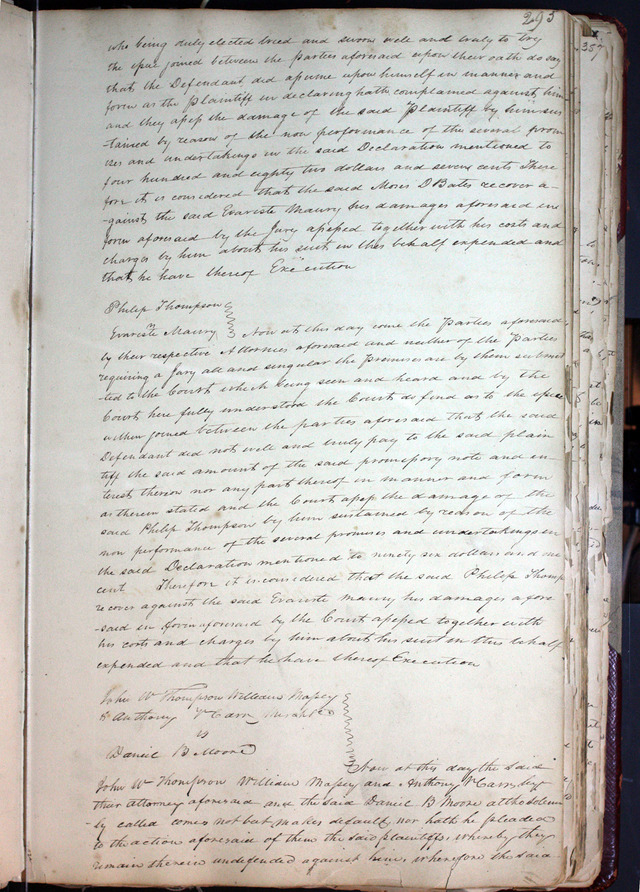 295
357
who being duly elected tried and sworn well and truly to try
the issue joined between the Parties aforesaid upon their oath do say
that the Defendant did assume upon himself in manner and
form as the Plaintiff in declaring hath complained against him
and they assess the damage of the said Plaintiff by him sus
tained by reason of the non performance of the several prom
ises and undertakings in the said Declaration mentioned to
four hundred and eighty two dollars and seven cents There
for it is considered that the said Moses D Bates recover a-
-gainst the said Evariste Maury his damages aforesaid in
form aforesaid by the Jury assessed together with his costs and
charges by him about his suit in this behalf expended and
that he have thereof Execution
Philip Thompson
Evariste Maury Now at this day come the Parties aforesaid
by their respective Attornies aforesaid and neither of the Parties
requiring a Jury all and singular the Premises are by them submit
-ted to the Court which being seen and heard and by the
Court here fully understood the Court do find as to the issue
within joined between the parties aforesaid that the said
Defendant did not well and truly pay to the said plain
tiff the said amount of the said promissory note and in-
terest thereon nor any part thereof in manner and form
as therein stated and the Court assess the damage of the
said Philip Thompson by him sustained by reason of the
non performance of the several promises and undertakings in
the said Declaration mentioned to ninety six dollars and one
cent Therefore it is considered that the said Philip Thomp
recover against the said Evariste Maury his damages afore
-said in form aforesaid by the Court assessed together with
his costs and charges by him about his suit in this behalf
expended and that he have thereof Execution
John W Thompson William Massey
& Anthony V Carr
vs
Daniel B Moore
Now at this day the said
John W Thompson William Massey and Anthony V Carr by
their attorney aforesaid and the said Daniel B Moore at the solemn
-ly called comes not but makes default nor hath he pleaded
to the action aforesaid of them the said plaintiffs whereby they
remain therein undefended against him, wherefore the said